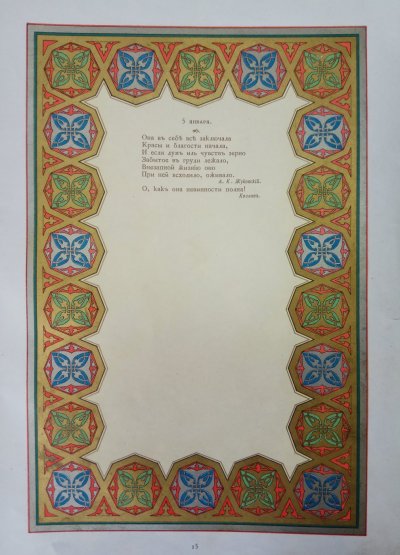 5 января.
Она въ себѣ всѣ заключала
Красы и благости начала,
И если думъ иль чувствъ зерно
Забытое въ груди лежало,
Внезапной жизнью оно
При ней всходило, оживало.
А. К. Жуковскій.
О, какъ она невинности полна!
Козловъ.
15